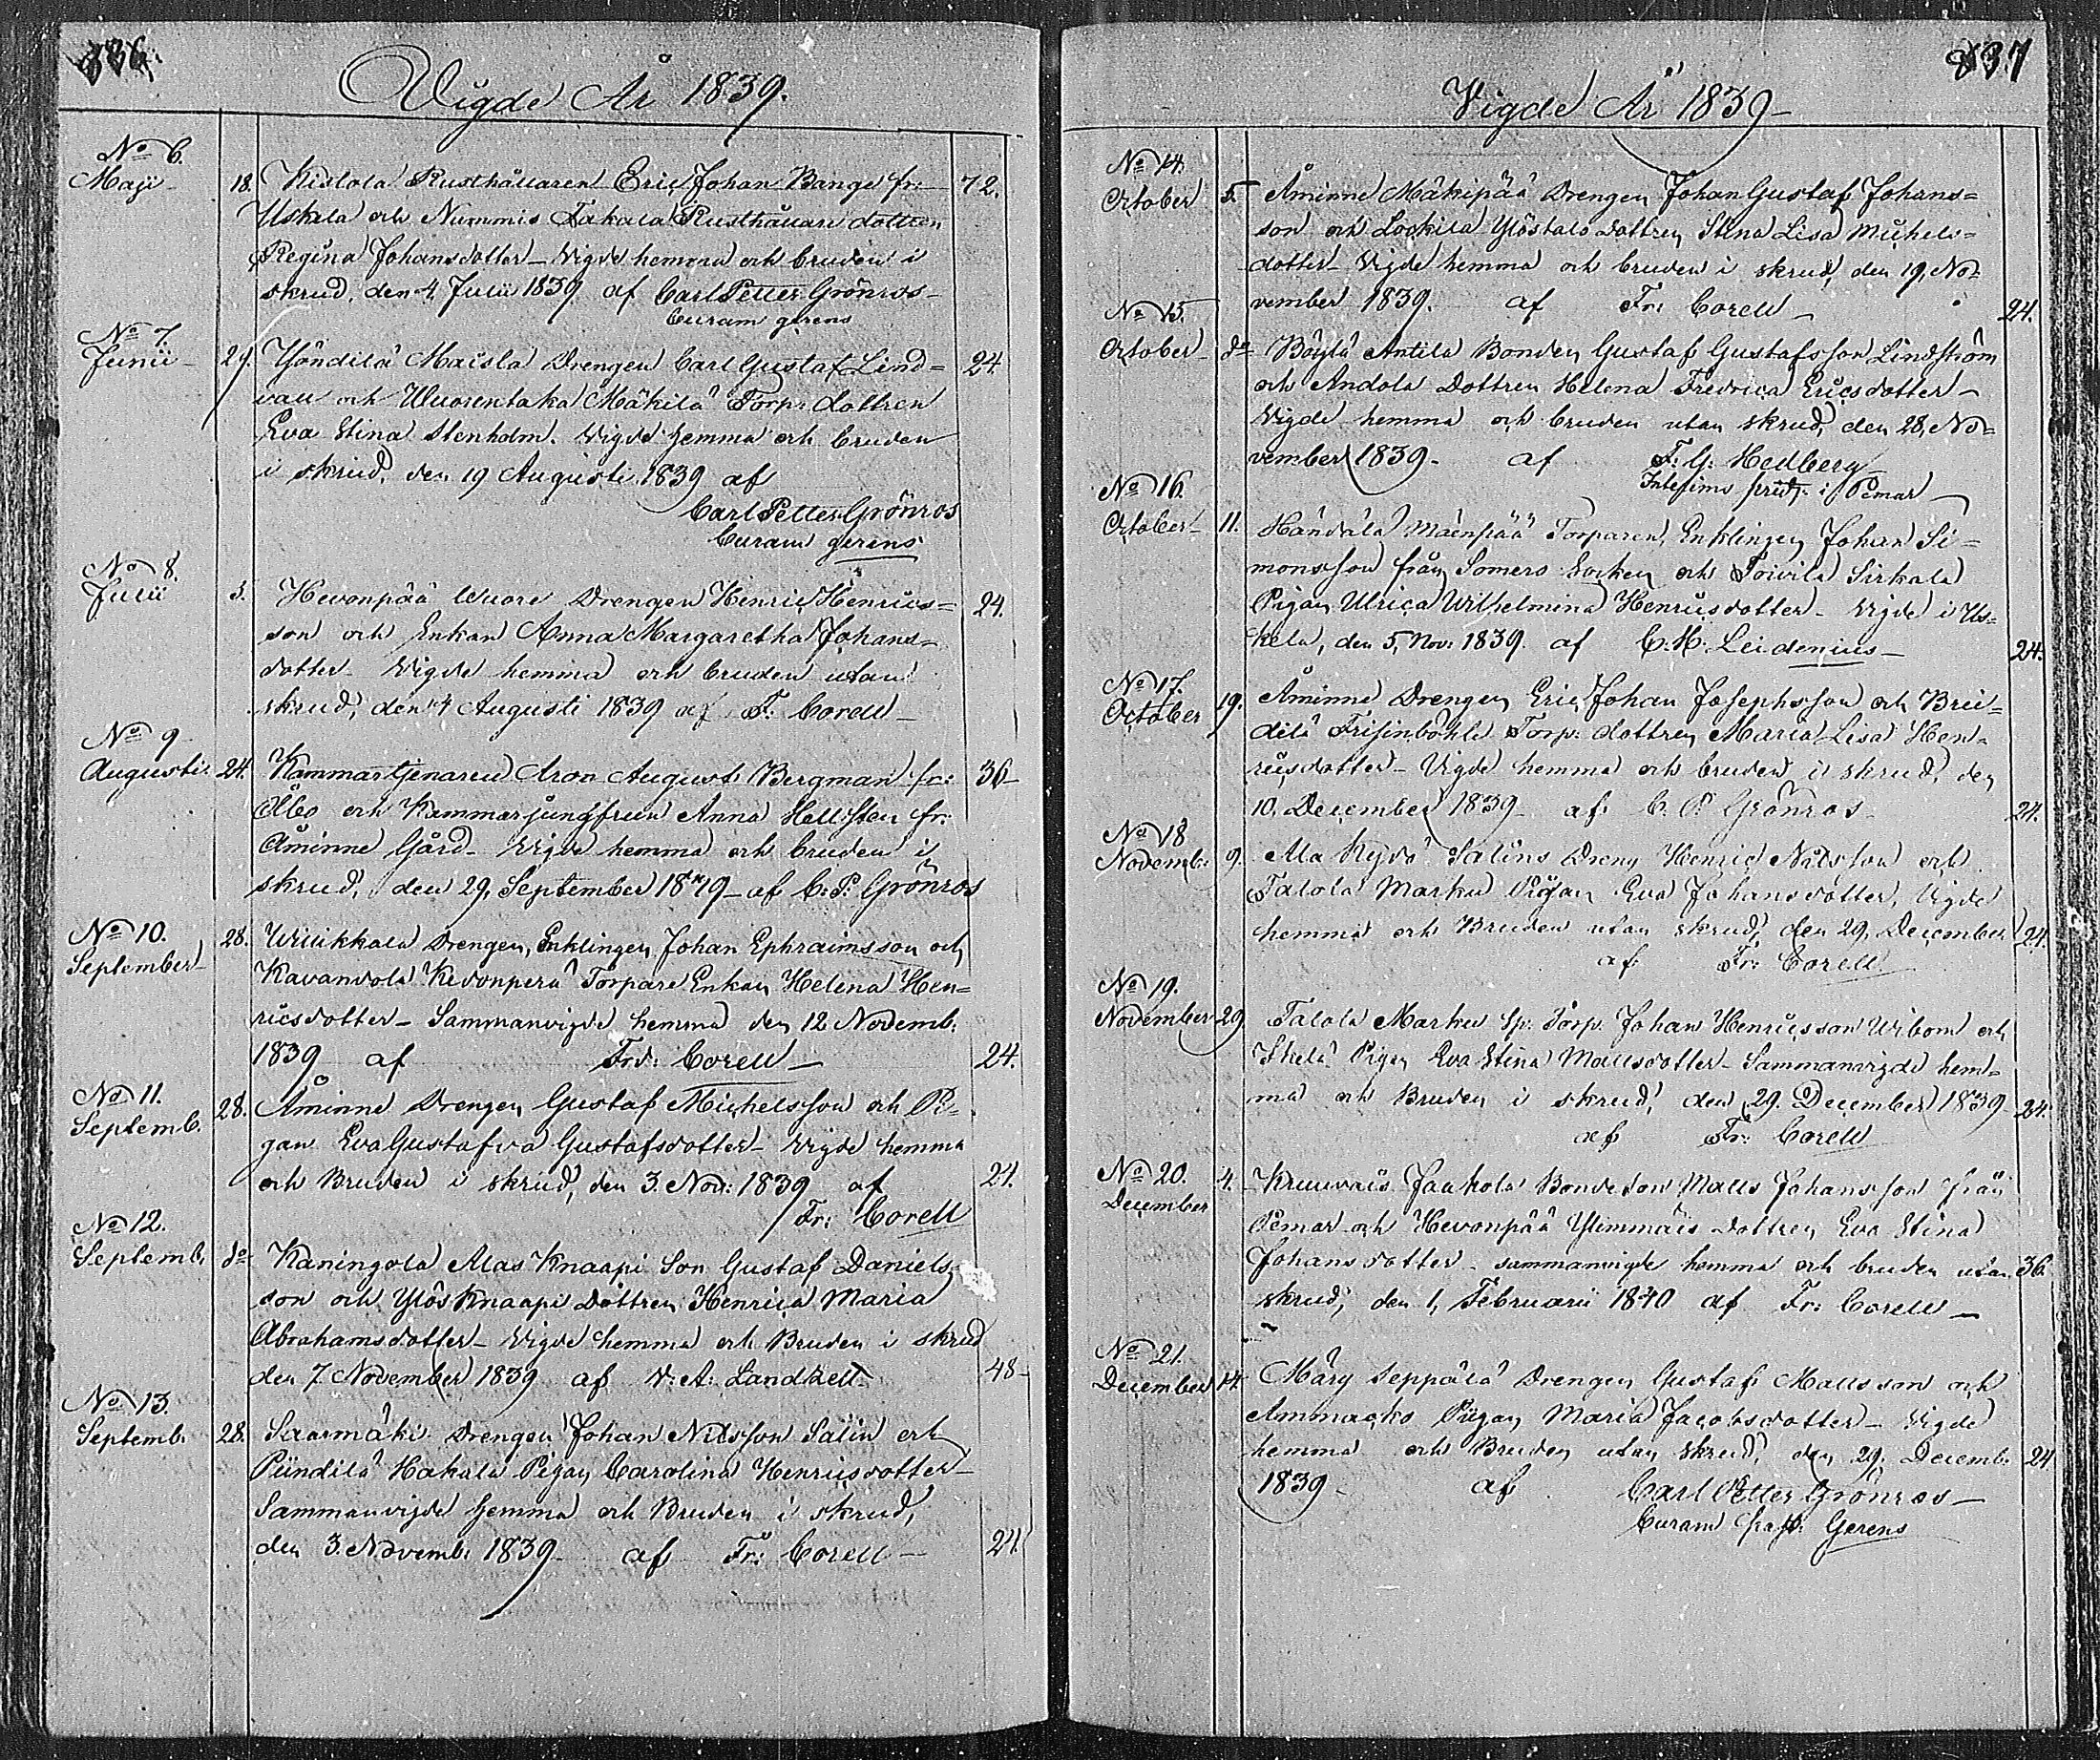 336.
Vigde År 1839.
No 6.
Maji 18. Kistola Rusthållaren Eric Johan Bange fr: 72.
Uskela och Nummis Takala Rusthållare dottren
Regina Johansdotter – Vigde hemma och bruden i
skrud, den 4 Julii 1839 af Carl Petter Grönros –
Curam gerens
No 7.
Junii 29. Yöndilä Maisla Drengen Carl Gustaf Lind= 24.
vall och Wuorentaka Mäkilä Torp. dottren
Eva Stina Stenholm. Vigde hemma och bruden
i skrud, den 19 Augusti 1839 af
Carl Petter Grönros
Curam gerens
No 8.
Julii 5. Hevonpää Wuore Drengen Henric Henrics= 24.
son och Enkan Anna Margaretha Johans=
dotter – Vigde hemma och bruden utan
skrud, den 4 Augusti 1839 af F: Corell –
No 9
Augusti 24. Kammartjenaren Aron August Bergman fr: 36–
Åbo och Kammarjungfrun Anna Hellsten fr:
Åminne Gård – Vigde hemma och bruden i
skrud, den 29, September 1819 – af C: P: Grönros
No 10.
September 28. Wiukkala Drengen, Enklingen Johan Ephraimsson och
Kavandola Kedonperä Torpare Enkan Helena Hen=
ricsdotter – Sammanvigde hemma den 12 Novemb.
1839 af Frd: Corell – 24.
No 11.
Septemb. 28. Åminne Drengen Gustaf Michelsson och Pi=
gan Eva Gustafva Gustafsdotter – Vigde hemma
och Bruden i skrud, den 3. Nov: 1839 af 24.
Fr: Corell
No 12.
Septemb. do Kaningola Alas Knaapi Son Gustaf Daniels
son och Ylös Knaapi Dottren Henrica Maria
Abrahamsdotter – Vigde hemma och Bruden i skrud
den 7. November 1839 af V: A: Landkell 48–
No 13.
Septemb. 28. Saarmäki Drengen Johan Nilsson Salin och
Pündilä Hakala Pigan Carolina Henricsdotter –
Sammanvigde hemma och Bruden i skrud,
den 3 Novemb. 1839 – af Fr: Corell – 24.
337
Vigde År 1839 –
No 14.
October 5. Åminne Mäkipää Drengen Johan Gustaf Johans=
son och Lockila Ylöstalo dottren Stina Lisa Michels=
dotter – Vigde hemma och bruden i skrud, den 19, No=
vember 1839. af Fr: Corell – 24.
No 15.
October do Böylä Antila Bonden Gustaf Gustafsson Lindström
och Andola Dottren Helena Fredrica Ericsdotter –
Vigde hemma och bruden utan skrud, den 28, No=
vember 1839 – af F: G: Hedberg
i Pemar –
No 16.
October 11. Händälä Mäenpää Torparen, Enklingen Johan Si=
monsson från Somero Socken och Toivila Sirkala
Pigan Ulrica Wilhelmina Henricsdotter – Vigde i Us=
kela, den 5, Nov: 1839. af C. H. Leidenius – 24.
No 17.
October 19. Åminne Drengen Eric Johan Josephsson och Brei=
dilä Frisinböhle Torp. dottren Maria Lisa Hen=
ricsdotter – Vigde hemma och bruden i skrud, den
10, December 1839 – af: C. P Grönros – 24.
No 18
Novemb: 9. Ala Rydö Salins Dreng Henric Nilsson och
Talola Marku Pigan Eva Johansdotter, Vigde
hemma och Bruden utan skrud, den 29, December 24.
af Fr: Corell
No 19.
November 29 Talola Marku Sp: Torp. Johan Henricsson Wibom och
Pigan Eva Stina Mattsdotter – Sammanvigde hem=
ma och Bruden i skrud, den 29. December 1839 24.
af Fr: Corell
No 20.
December 4. Kruuvais Jaakola Bondeson Matts Johansson från
Pemar och Hevonpää Ylimmäis Dottren Eva Stina
Johansdotter – sammanvigde hemma och bruden utan 36.
skrud, den 1, Februarii 1840 af Fr: Corell –
No 21.
December 14. Märy Seppälä Drengen Gustaf Mattsson och
Ammacko Pigan Maria Jacobsdotter – Vigde
hemma och Bruden utan skrud, den 29. Decemb. 24
1839 – af Carl Petter Grönros –
Curam past: Gerens